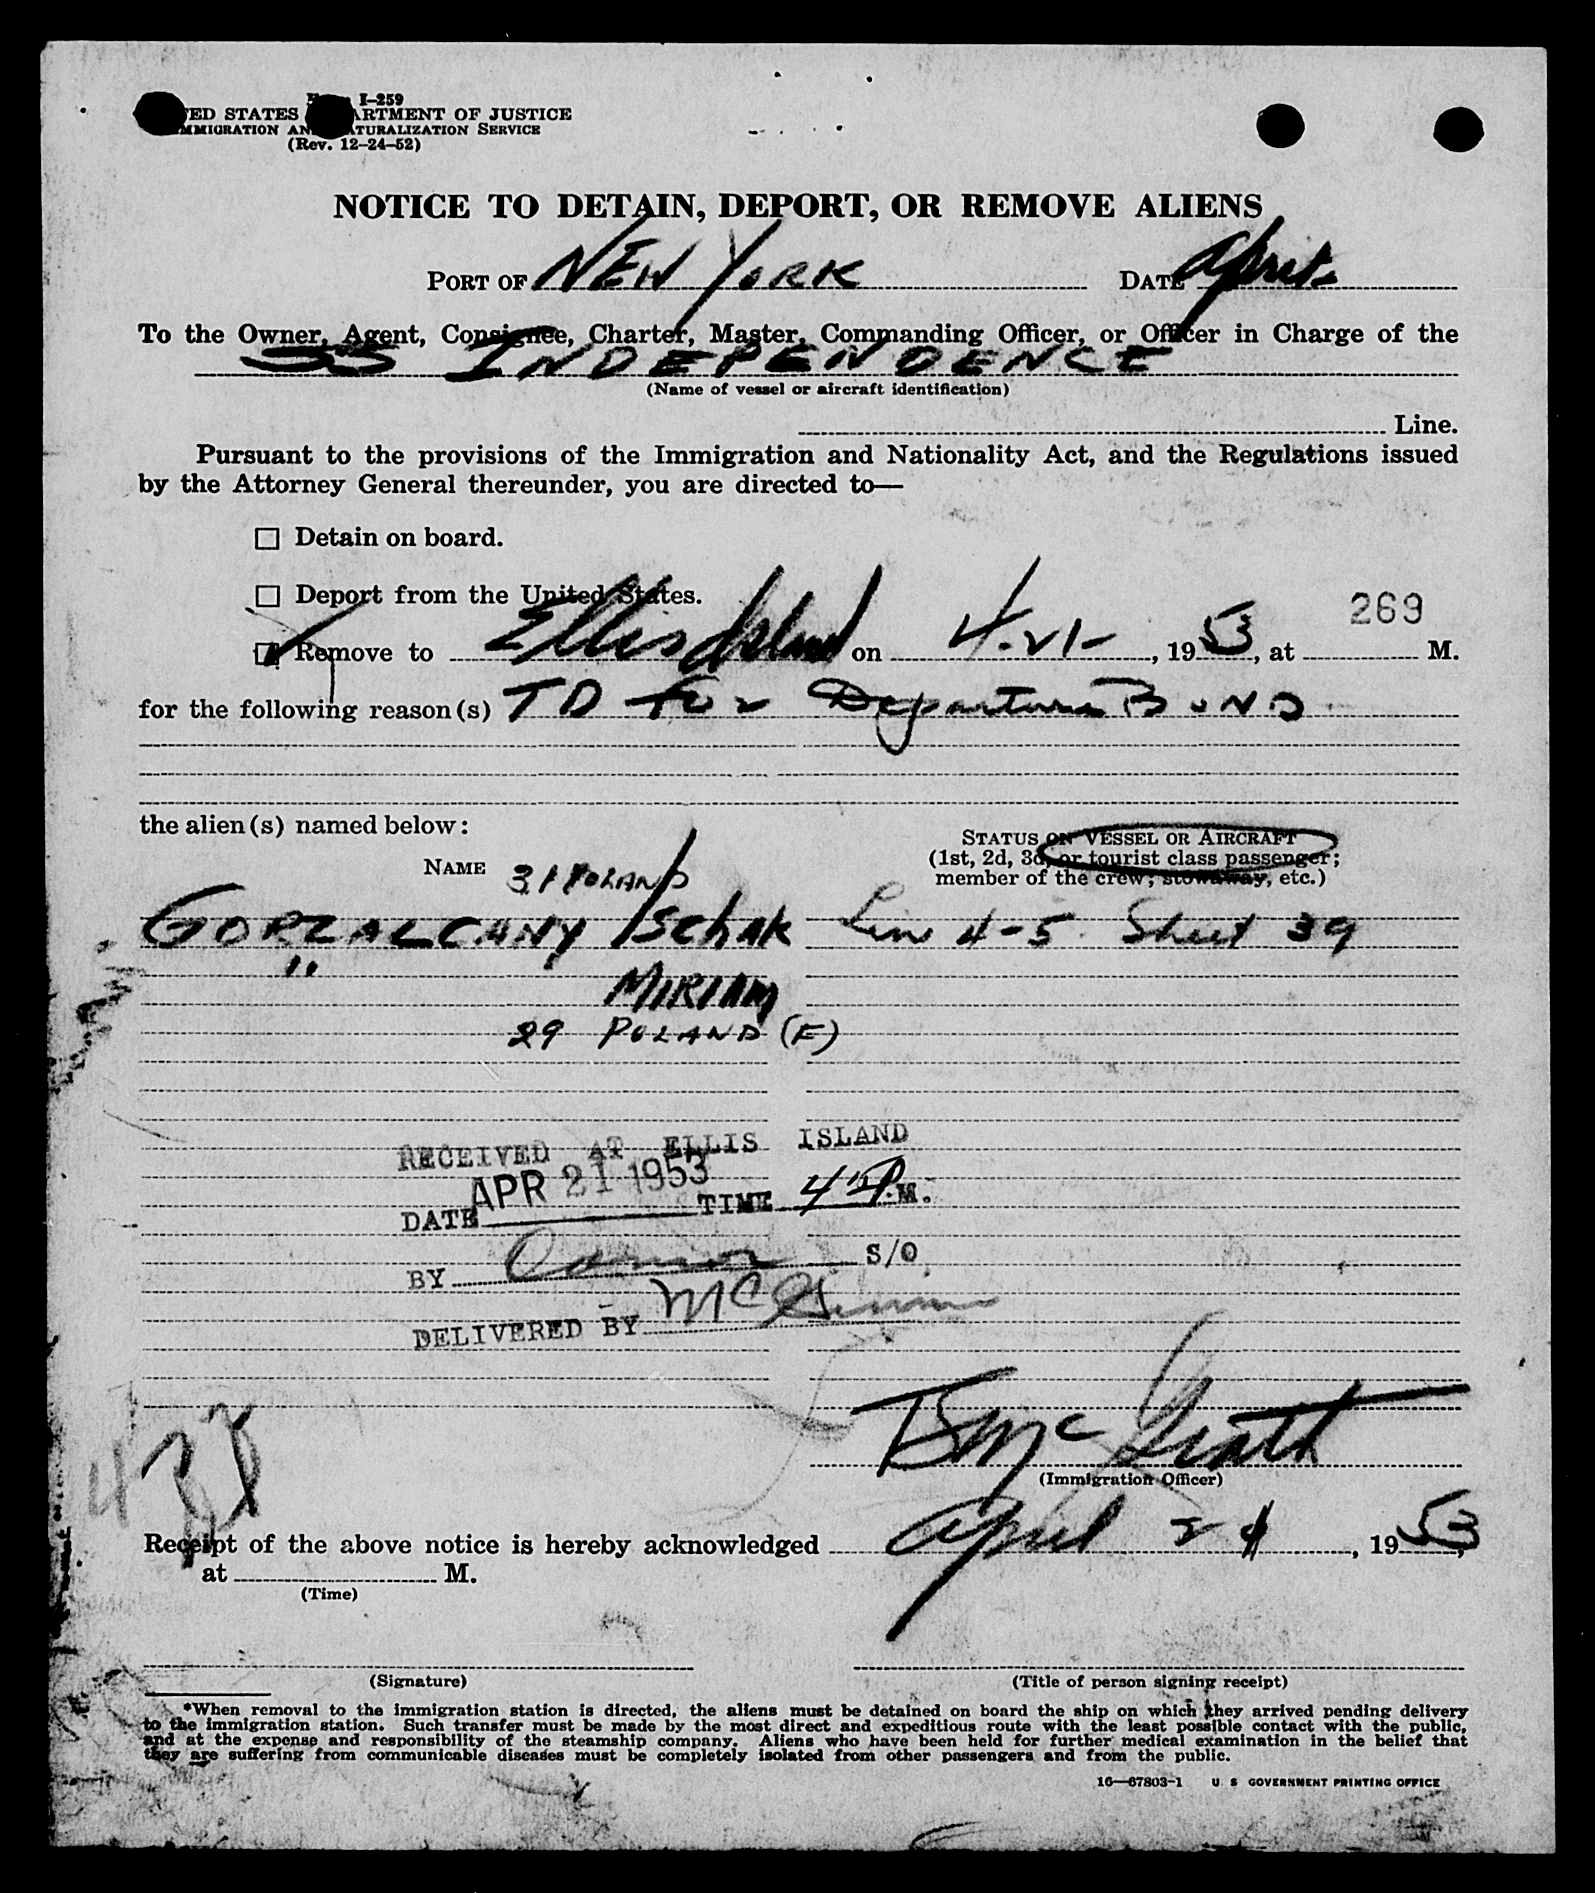 I-259
ED STATES RTMENT OF JUSTICE
MMIGRATION AN ATURALIZATION SERVICE
(Rev. 12-24-52)
NOTICE TO DETAIN, DEPORT, OR REMOVE ALIENS
PORT OF NEW YORK DATE April
To the Owner, Agent, Consignee, Charter, Master, Commanding Officer, or Officer in Charge of the
SS INDEPENDENCE
(Name of vessel or aircraft identification)
Line.
Pursuant to the provisions of the Immigration and Nationality Act, and the Regulations issued
by the Attorney General thereunder, you are directed to—
☐ Detain on board.
☐ Deport from the United States.
269
☑ Remove to Ellis Island on 4-21-, 1953, at M.
for the following reason(s) TD for Departure BOND
the alien(s) named below:
STATUS ON VESSEL OR AIRCRAFT
(1st, 2d, 3d, or tourist class passenger;
member of the crew, stowaway, etc.)
NAME 31 POLAND
GORZALCANY ISCHAK Line 4-5 Sheet 39
" MIRIAM
29 POLAND (E)
RECEIVED AT ELLIS ISLAND
DATE APR 21 1953 TIME 4 P.M.
BY S/O
DELIVERED BY
McGrath
(Immigration Officer)
Receipt of the above notice is hereby acknowledged April 21, 1953,
at M.
(Time)
(Signature) (Title of person signing receipt)
*When removal to the immigration station is directed, the aliens must be detained on board the ship on which they arrived pending delivery
to the immigration station. Such transfer must be made by the most direct and expeditious route with the least possible contact with the public,
and at the expense and responsibility of the steamship company. Aliens who have been held for further medical examination in the belief that
they are suffering from communicable diseases must be completely isolated from other passengers and from the public.
16—67803-1 U. S. GOVERNMENT PRINTING OFFICE